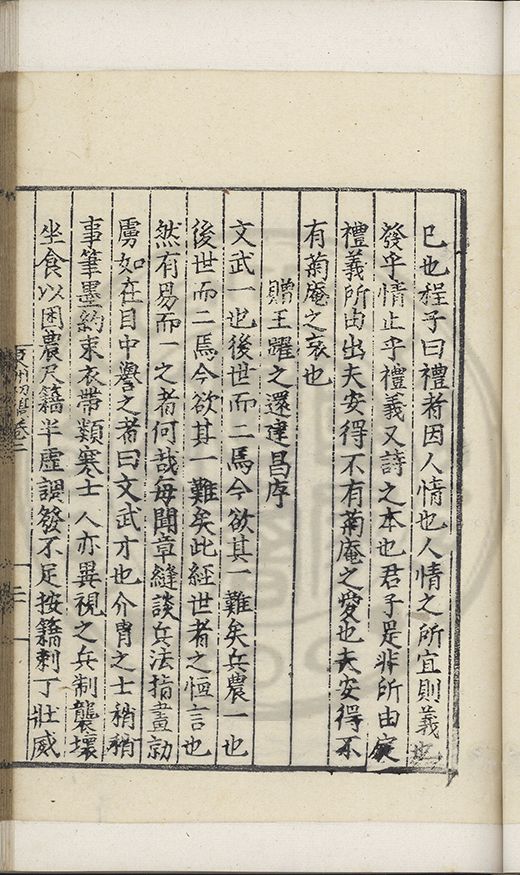 已也程子曰禮者因人情也人情之所宜則義也
發乎情止乎禮義又詩之本也君子是非所由定
禮義所由出夫安得不有菊庵之愛也夫安得不
有菊庵之哀也
贈王躍之還建昌序
文武一也後世而二焉今欲其一難矣兵農一也
後世而二焉今欲其一難矣此經世者之恒言也
然有易而一之者何哉每聞章縫談兵法指畫勍
虜如在目中譽之者曰文武才也介冑之士稍稍
事筆墨約束衣帶類寒士人亦異視之兵制襲壞
坐食以困農尺籍半虛調發不足按籍剌丁壯威
卷二